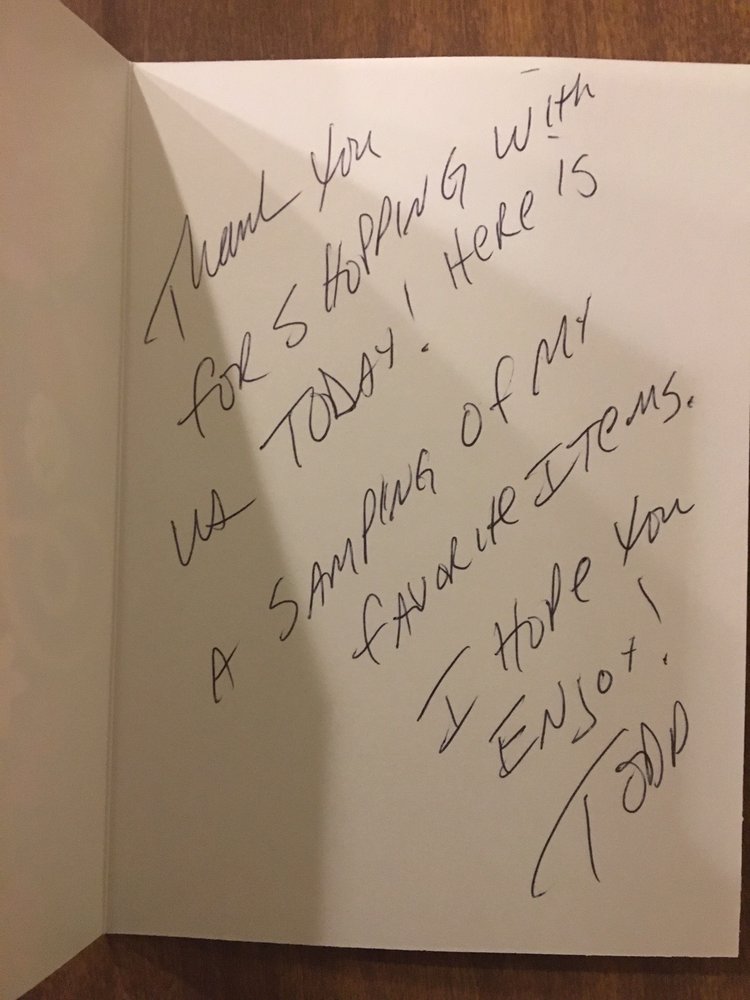 Thank You
for SHOPPING With
us TODAY! Here is
A SAMPLING Of MY
fAVORITE ITEMS.
I HOPE You
ENJOY!
TODD